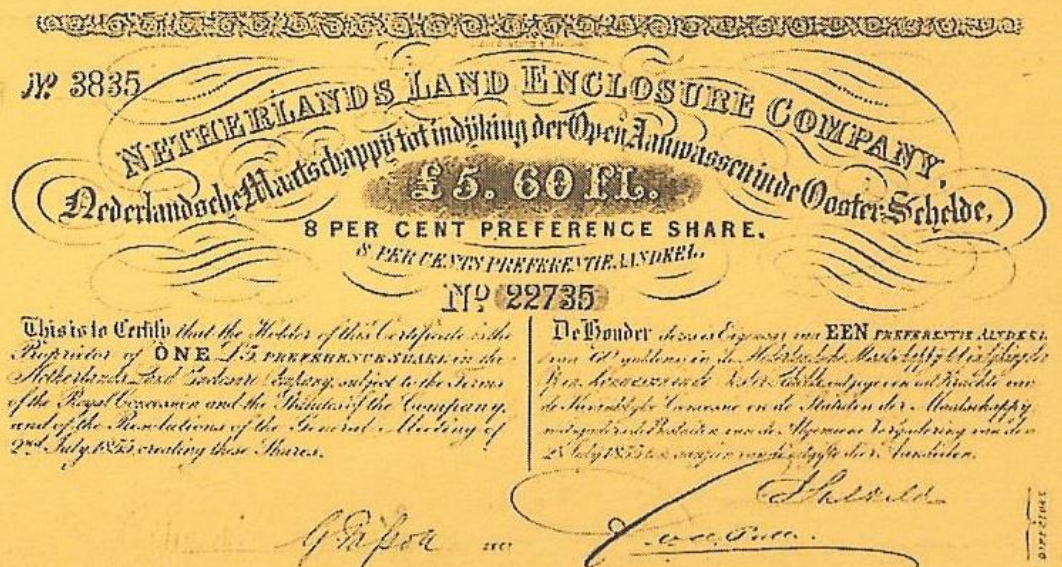 Nº 3835
NETHERLANDS LAND ENCLOSURE COMPANY,
Nederlandsche Maatschappÿ tot indÿking der Open Aanwassen in de Ooster-Schelde,
£ 5. 60 FL.
8 PER CENT PREFERENCE SHARE.
8 PER CENTS PREFERENTIE AANDEEL.
Nº 22735
This is to Certify that the Holder of this Certificate is the
Proprietor of ONE £5 PREFERENCE SHARE in the
Netherlands Land Enclosure Company, subject to the Terms
of the Royal Concession and the Statutes of the Company,
and of the Resolutions of the General Meeting of
2nd July 1855 creating these Shares.
De Houder dezes is Eigenaar van EEN PREFERENTIE AANDEEL
van 60 guldens in de Nederlandsche Maatschappÿ
de Koninklÿke Concessie en de Statuten der Maatschappÿ
van de Algemeene Vergadering van den
July 1855
DIRECTORS